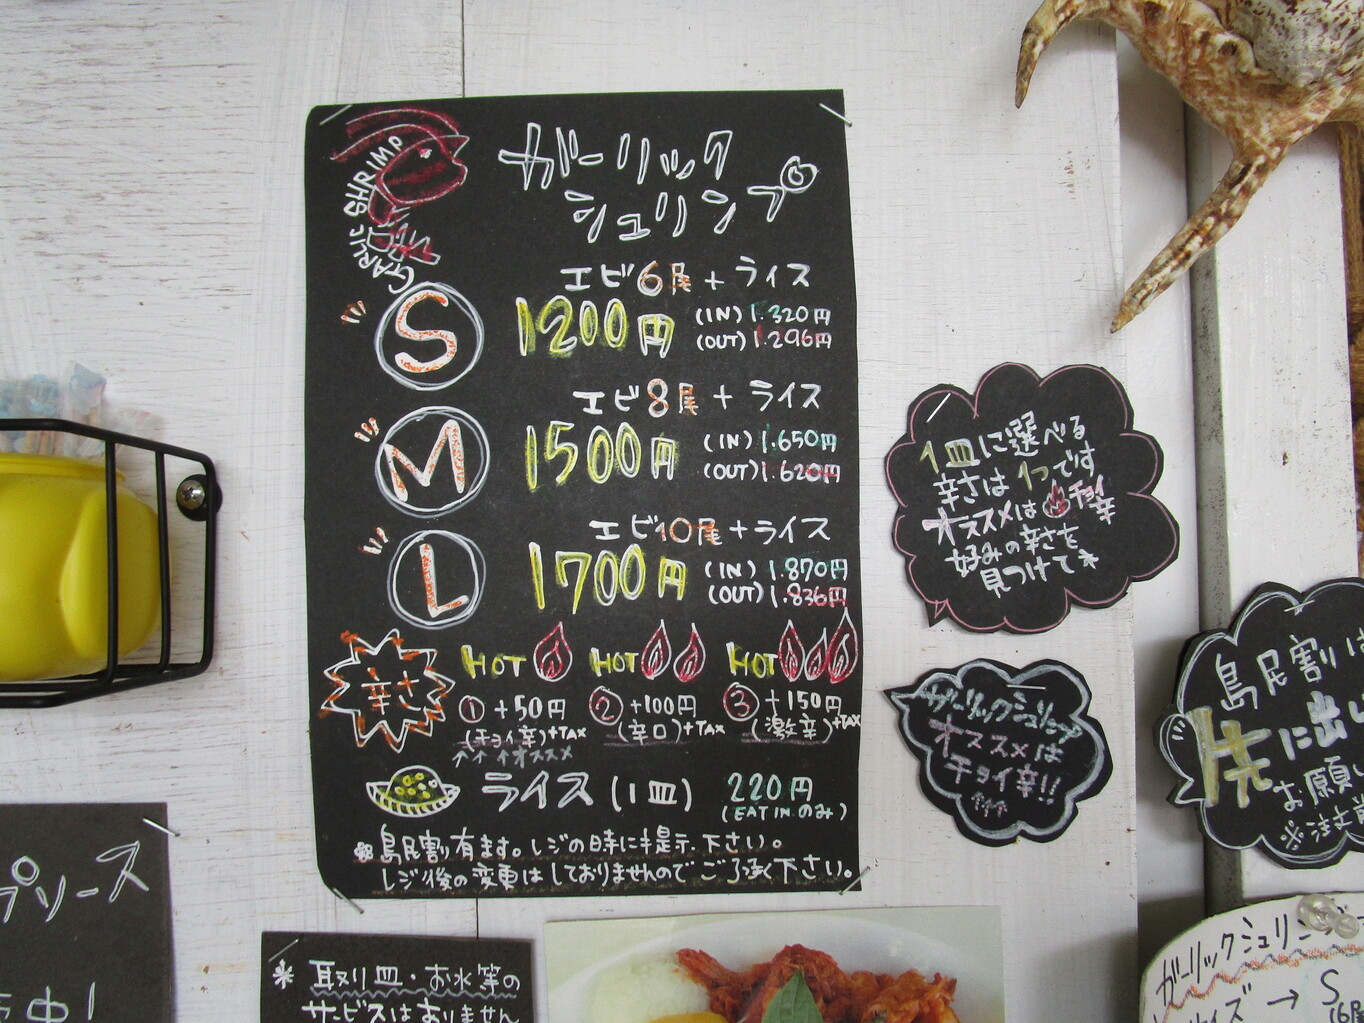 GARLIC SHRIMP
ガーリック
シュリンプ
S
エビ6尾+ライス
1200円
(IN) 1.320円
(OUT) 1.296円
M
エビ8尾+ライス
1500円
(IN) 1.650円
(OUT) 1.620円
L
エビ10尾+ライス
1700円
(IN) 1.870円
(OUT) 1.836円
辛さ
HOT HOT HOT
① +50円 ② +100円 ③ +150円
(チョイ辛)+TAX (辛口)+TAX (激辛)+TAX
↑↑ イオススメ
ライス (1皿) 220円
(EAT INのみ)
島民割有ます。レジの時に提示下さい。
レジ後の変更はしておりませんのでご了承下さい。
1皿に選べる
辛さは1つです
オススメはチョイ辛
好みの辛さを
見つけてネ
ガーリックシュリンプ
オススメは
チョイ辛!!
↑↑↑
島民割は
先に出
お願い
※注文
プソース
中!
* 取り皿・お水等の
サービスはありません
ガーリックシュリンプ
イズ → S
(6尾